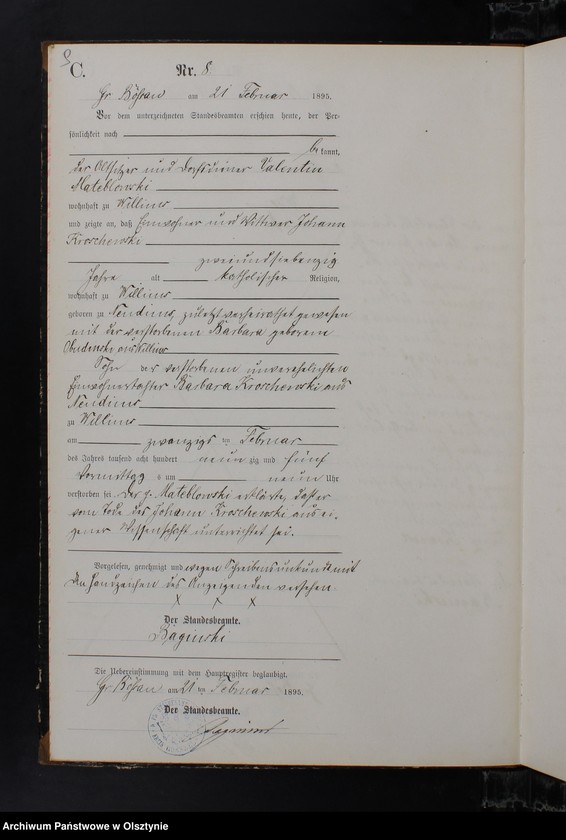 C. Nr. 8
Gr Bößau am 21 Februar 1895.
Vor dem unterzeichneten Standesbeamten erschien heute, der Per-
sönlichkeit nach
bekannt,
der Altsitzer und Dorfsdiener Valentin
Mateblowski
wohnhaft zu Willims
und zeigte an, daß Einwohner und Wittwer Johann
Kroschewski
zweiundsiebenzig
Jahre alt katholischer Religion,
wohnhaft zu Willims
geboren zu Neudims, zuletzt verheirathet gewesen
mit der verstorbenen Barbara geborene
aus Willims
Sohn der verstorbenen unverehelichten
Einwohnertochter Barbara Kroschewski aus
Neudims
zu Willims
am zwanzigs ten Februar
des Jahres tausend acht hundert neunzig und fünf
Vormittags um neun Uhr
verstorben sei. Der p. Mateblowski erklärte, daß er
vom Tode des Johann Kroschewski aus ei-
gener Wissenschaft unterrichtet sei.
Vorgelesen, genehmigt und wegen Schreibensunkunde mit
den Handzeichen des Anzeigenden versehen
X X X
Der Standesbeamte.
Baginski
Die Uebereinstimmung mit dem Hauptregister beglaubigt.
Gr Bößau am 21 ten Februar 1895.
Der Standesbeamte.
Baginski
Archiwum Państwowe w Olsztynie